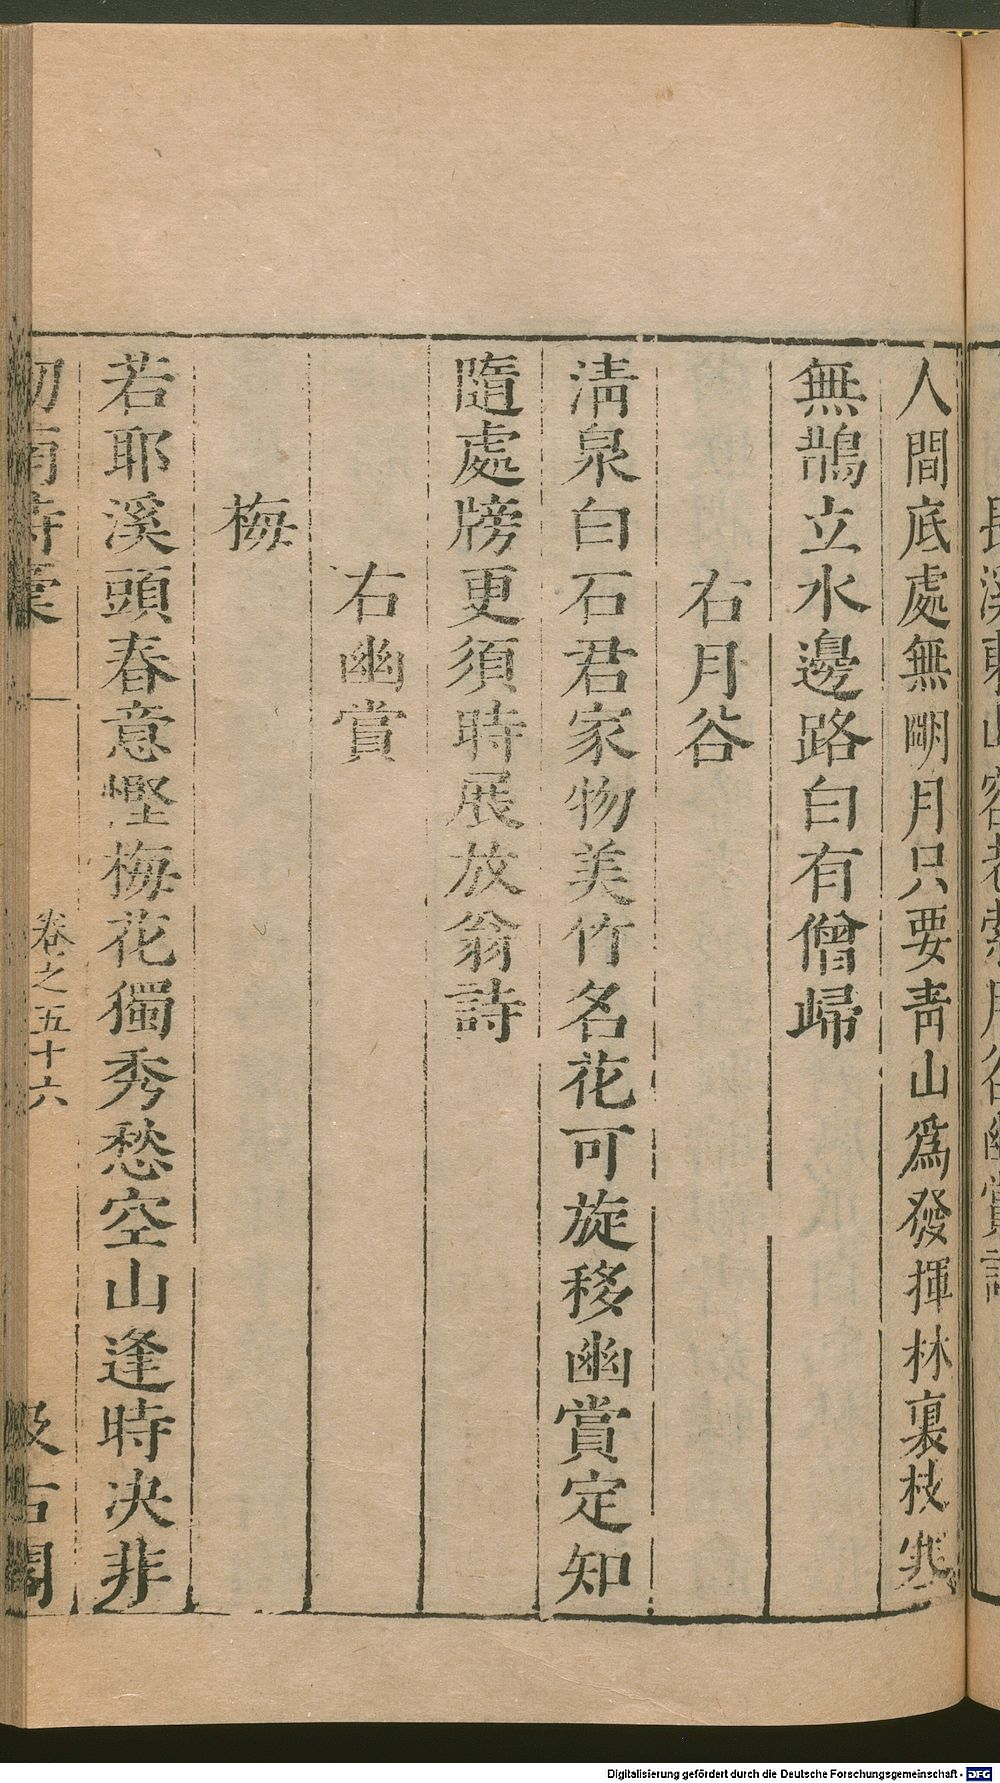 人間底處無朙月只要靑山爲發揮林裏枝寒
無鵲立水邊路白有僧歸
右月谷
淸泉白石君家物美竹名花可旋移幽賞定知
隨處牓更須時展放翁詩
右幽賞
梅
若耶溪頭春意慳梅花獨秀愁空山逢時決非
劒南詩稾
卷之五十六
汲古閣
Digitalisierung gefördert durch die Deutsche Forschungsgemeinschaft - DFG